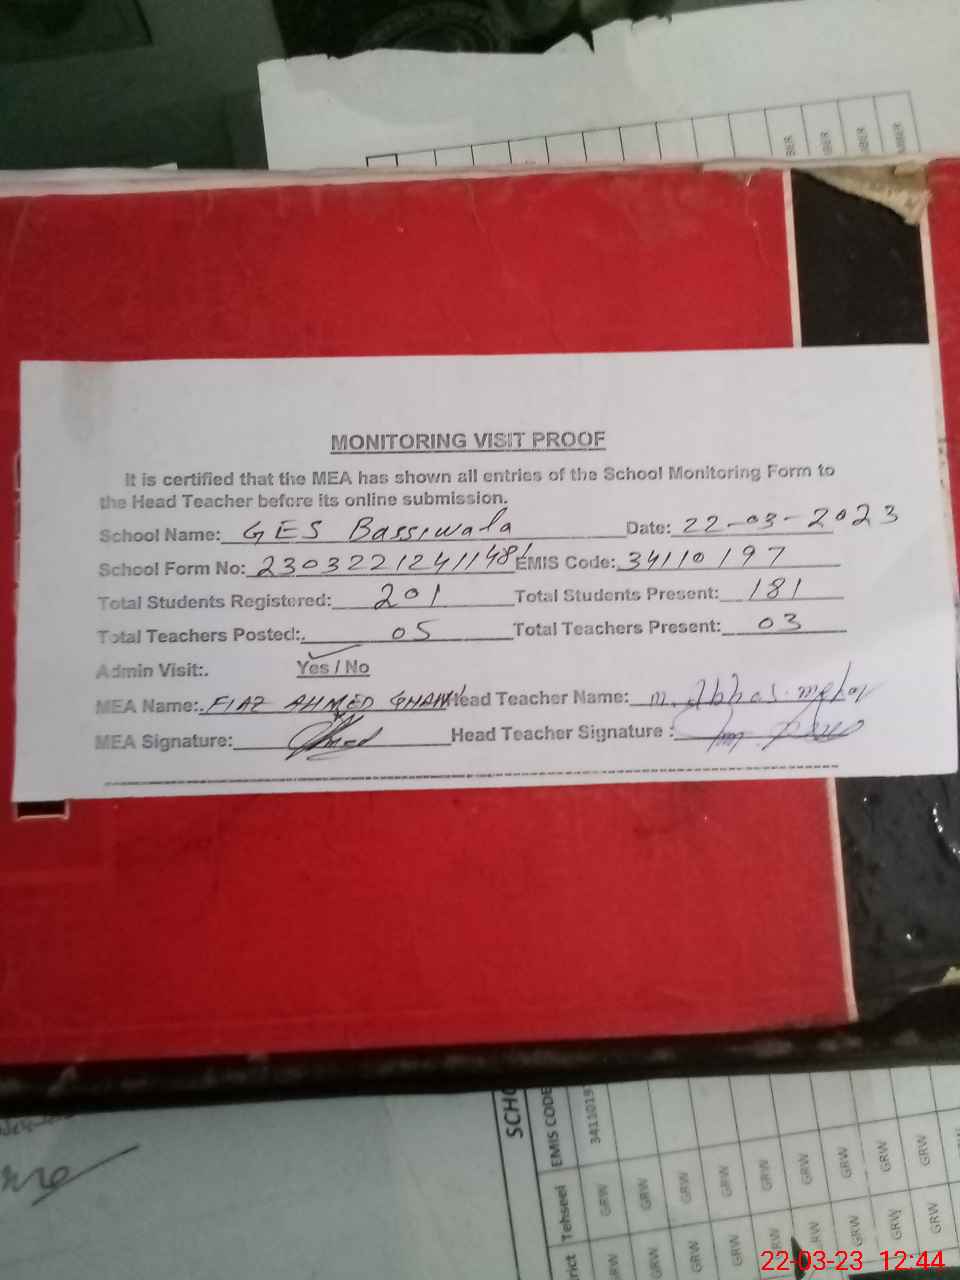 MONITORING VISIT PROOF
It is certified that the MEA has shown all entries of the School Monitoring Form to
the Head Teacher before its online submission.
School Name: GES Bassiwala Date: 22-03-2023
School Form No: 2303221241148 EMIS Code: 34110197
Total Students Registered: 201 Total Students Present: 181
Total Teachers Posted: 05 Total Teachers Present: 03
Admin Visit: Yes / No
MEA Name: FIAZ AHMED Head Teacher Name: M. Abbas
MEA Signature: Head Teacher Signature :
EMIS CODE
Tehseel
GRW GRW GRW GRW GRW GRW GRW GRW GRW
GRW GRW GRW GRW GRW GRW GRW
22-03-23 12:44